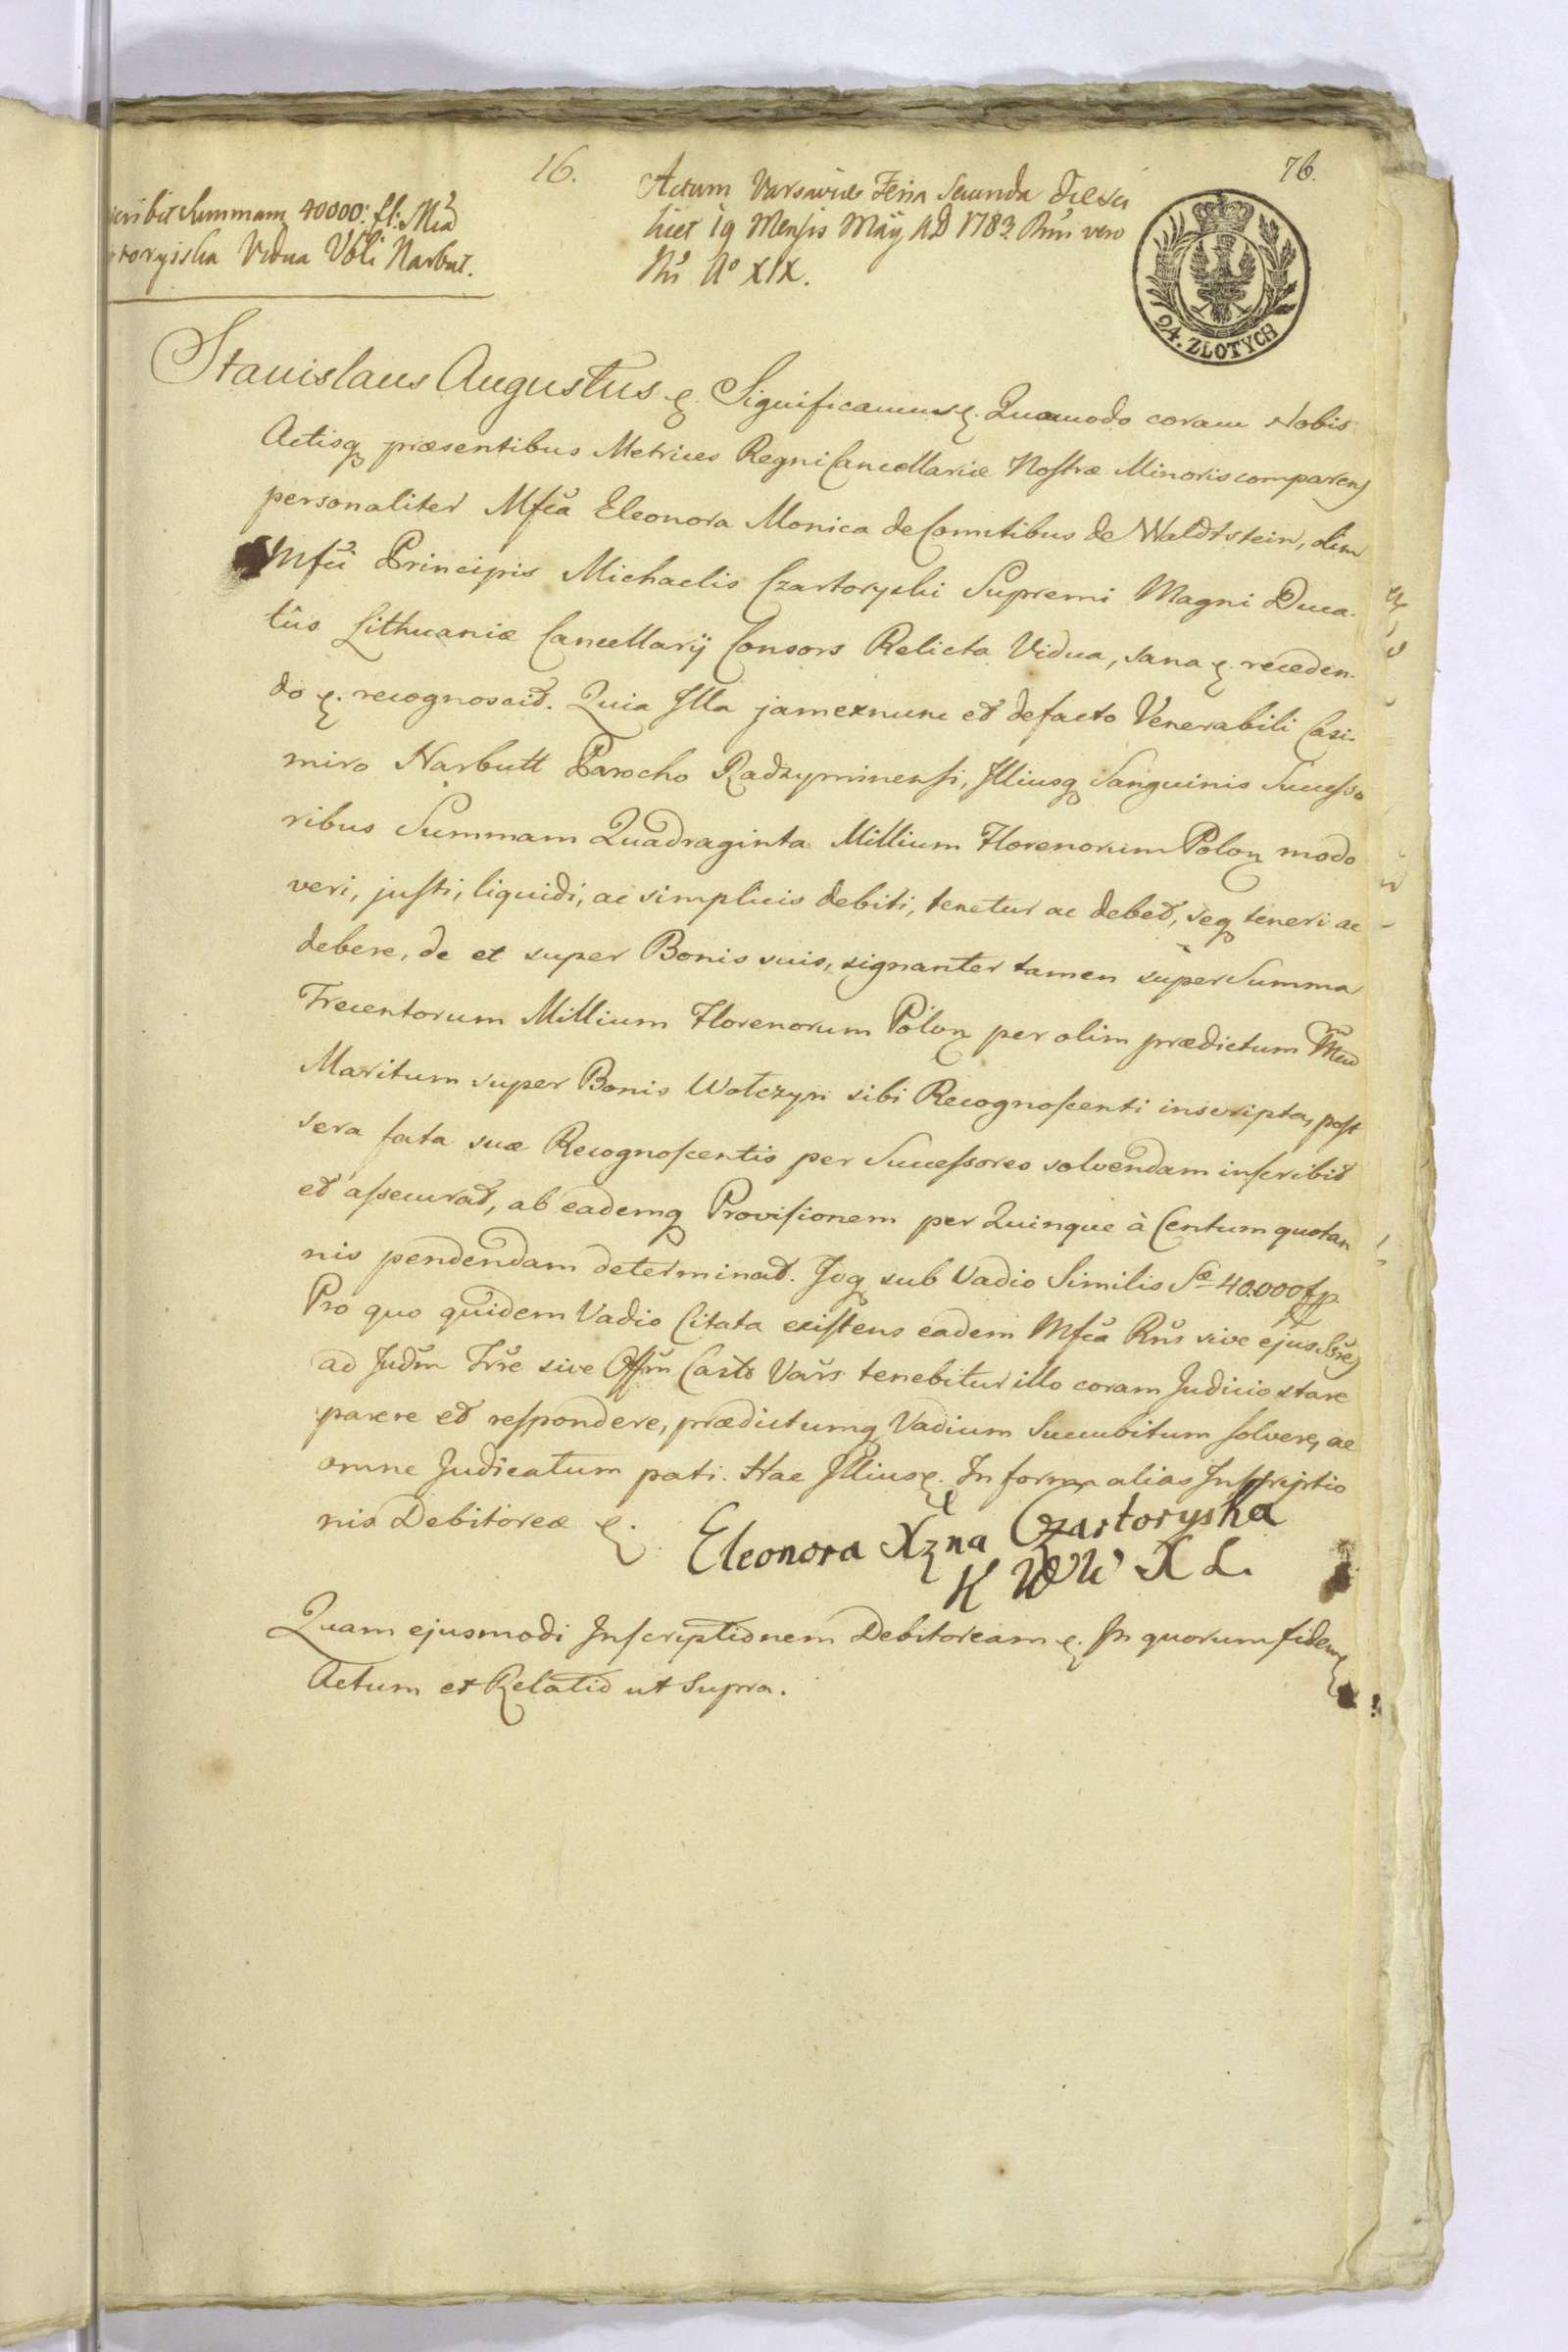 16.
76.
scribit Summam 40000: fl: Mca
toryiska Vidua Vbli Narbut.
Actum Varsaviæ Feria Secunda
19 Mensis Maÿ AD 1783 Rni vero
Nri Ao XIX.
24. ZŁOTYCH
Stanislaus Augustus &. Significamus &. Quomodo coram Nobis
Actisq præsentibus Metrices Regni Cancellariæ Nostræ Minoris comparens
personaliter Mfca Eleonora Monica de Comitibus de Waldtstein, olim
Mfci Principis Michaelis Czartoryski Supremi Magni Duca-
tûs Lithuaniæ Cancellarij Consors Relicta Vidua, sana &. receden-
do &. recognoscit. Quia Illa jamexnunc et defacto Venerabili Casi-
miro Narbutt Parocho Radzyminensi, Illiusq Sanguinis Successo
ribus Summam Quadraginta Millium Florenorum Polon modo
veri, justi, liquidi, ac simplicis debiti, tenetur ac debet, seq teneri ac
debere, de et super Bonis suis, signanter tamen super Summa
Trecentorum Millium Florenorum Polon per olim prædictum Mcum
Maritum super Bonis Wołczyn sibi Recognoscenti inscripta, post
sera fata suæ Recognoscentis per Successores solvendam inscribit
et assecurat, ab eademq Provisionem per Quinque à Centum quotan
nis pendendam determinat. Idq sub Vadio Similis Sæ 40.000 fp.
Pro quo quidem Vadio Citata existens eadem Mfca Rns sive ejus Ssres
ad Judm Trre sive Offm Castr Vars tenebitur illo coram Judicio stare
parere et respondere, prædictumq Vadium Succubitum solvere, ac
omne Judicatum pati. Hac Illius &. In forma alias Inscriptio
nis Debitoreæ &.
Eleonora Xzna Czartoryska
K W W X L.
Quam ejusmodi Inscriptionem Debitoream &. In quorum fidem &
Actum et Relatio ut Supra.